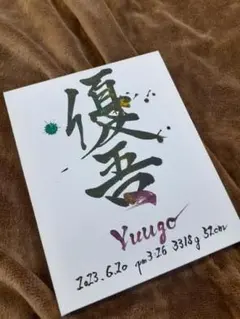 優吾
Yuugo
2023.6.20 pm3:26 3318g 52cm